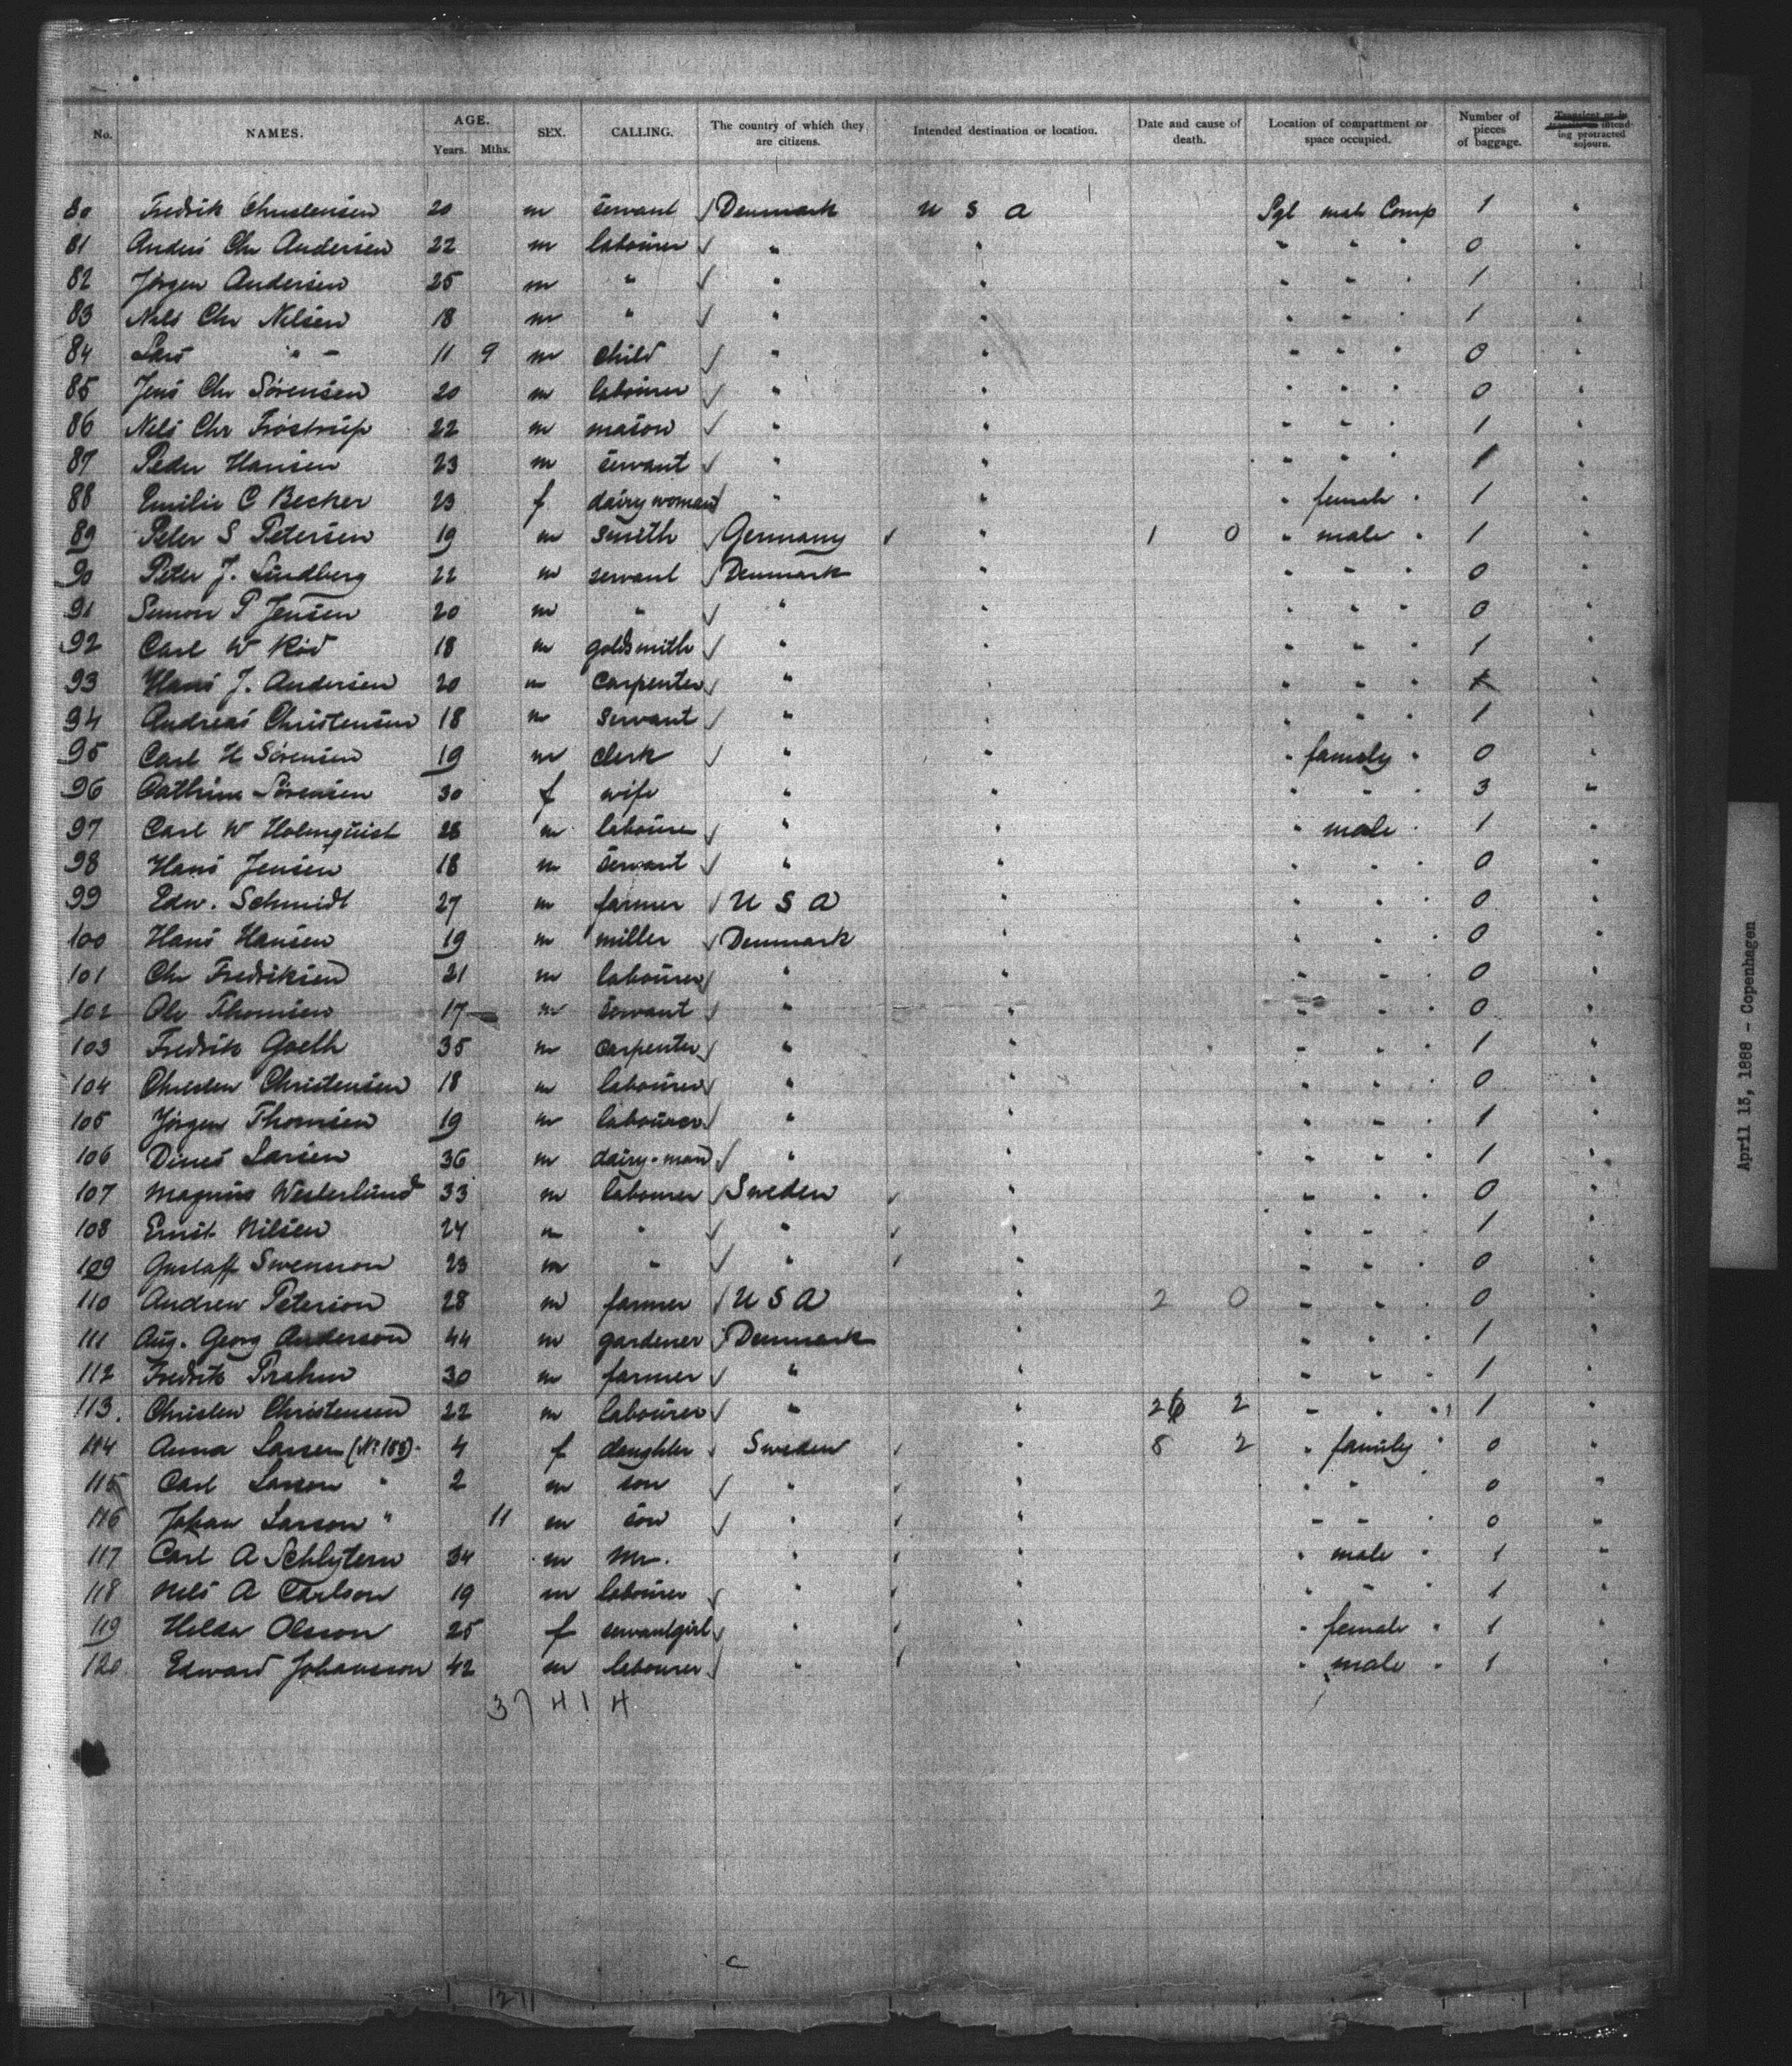 No. NAMES. AGE. Years. Mths. SEX. CALLING. The country of which they are citizens. Intended destination or location. Date and cause of death. Location of compartment or space occupied. Number of pieces of baggage. Transient or in intending protracted sojourn.
80 Fredrik Christensen 20 m servant √ Denmark U S A Sgl male Comp 1 "
81 Anders Chr Andersen 22 m labourer √ " " " " " 0 "
82 Jörgen Andersen 25 m " √ " " " " " 1 "
83 Nels Chr Nilsen 18 m " √ " " " " " 1 "
84 Lars " - 11 9 m child √ " " " " " 0 "
85 Jens Chr Sörensen 20 m labourer √ " " " " " 0 "
86 Nels Chr Tröstrup 22 m mason √ " " " " " 1 "
87 Peder Hansen 23 m servant √ " " " " " 1 "
88 Emilie C Becker 23 f dairy woman √ " " " female " 1 "
89 Peter S Petersen 19 m smith √ Germany √ " 1 0 " male " 1 "
90 Peter J. Lindberg 22 m servant √ Denmark " " " " 0 "
91 Simon P Jensen 20 m " √ " " " " " 0 "
92 Carl W Röd 18 m goldsmith √ " " " " " 1 "
93 Hans J. Andersen 20 m carpenter √ " " " " " 1 "
94 Andreas Christensen 18 m servant √ " " " " " 1 "
95 Carl H Sörensen 19 m clerk √ " " " family " 0 "
96 Cathrine Sörensen 30 f wife " " " " " 3 "
97 Carl W Holmquist 28 m labourer √ " " " male " 1 "
98 Hans Jensen 18 m servant √ " " " " " 0 "
99 Edw. Schmidt 27 m farmer √ U S A " " " " 0 "
100 Hans Hansen 19 m miller √ Denmark " " " " 0 "
101 Chr Fredriksen 21 m labourer √ " " " " " 0 "
102 Ole Thomsen 17 m servant √ " " " " " 0 "
103 Fredrik Goeth 35 m carpenter √ " " " " " 1 "
104 Christen Christensen 18 m labourer √ " " " " " 0 "
105 Jörgen Thomsen 19 m labourer √ " " " " " 1 "
106 Dines Larsen 36 m dairy-man √ " " " " " 1 "
107 Magnus Westerlund 33 m labourer √ Sweden √ " " " " 0 "
108 Ernst Nilsen 24 m " √ " √ " " " " 1 "
109 Gustaff Swenson 23 m " √ " √ " " " " 0 "
110 Andrew Peterson 28 m farmer √ U S A " 2 0 " " " 0 "
111 Aug. Georg Anderson 44 m gardener √ Denmark " " " " 1 "
112 Fredrik Prahm 30 m farmer √ " " " " " 1 "
113. Christen Christensen 22 m labourer √ " " 26 2 " " " 1 "
114 Anna Larsen (No 188) 4 f daughter √ Sweden √ " 8 2 " family " 0 "
115 Carl Larson " 2 m son √ " √ " " " 0 "
116 Johan Larson " 11 m son √ " √ " " " " 0 "
117 Carl A Schlytern 34 m Mr. " √ " " male " 1 "
118 Nels A Carlson 19 m labourer √ " √ " " " " 1 "
119 Hilda Olsson 25 f servantgirl √ " √ " " female " 1 "
120 Edward Johansson 42 m labourer √ " √ " " male " 1 "
37 4 1 4
C
1211
April 13, 1888 - Copenhagen